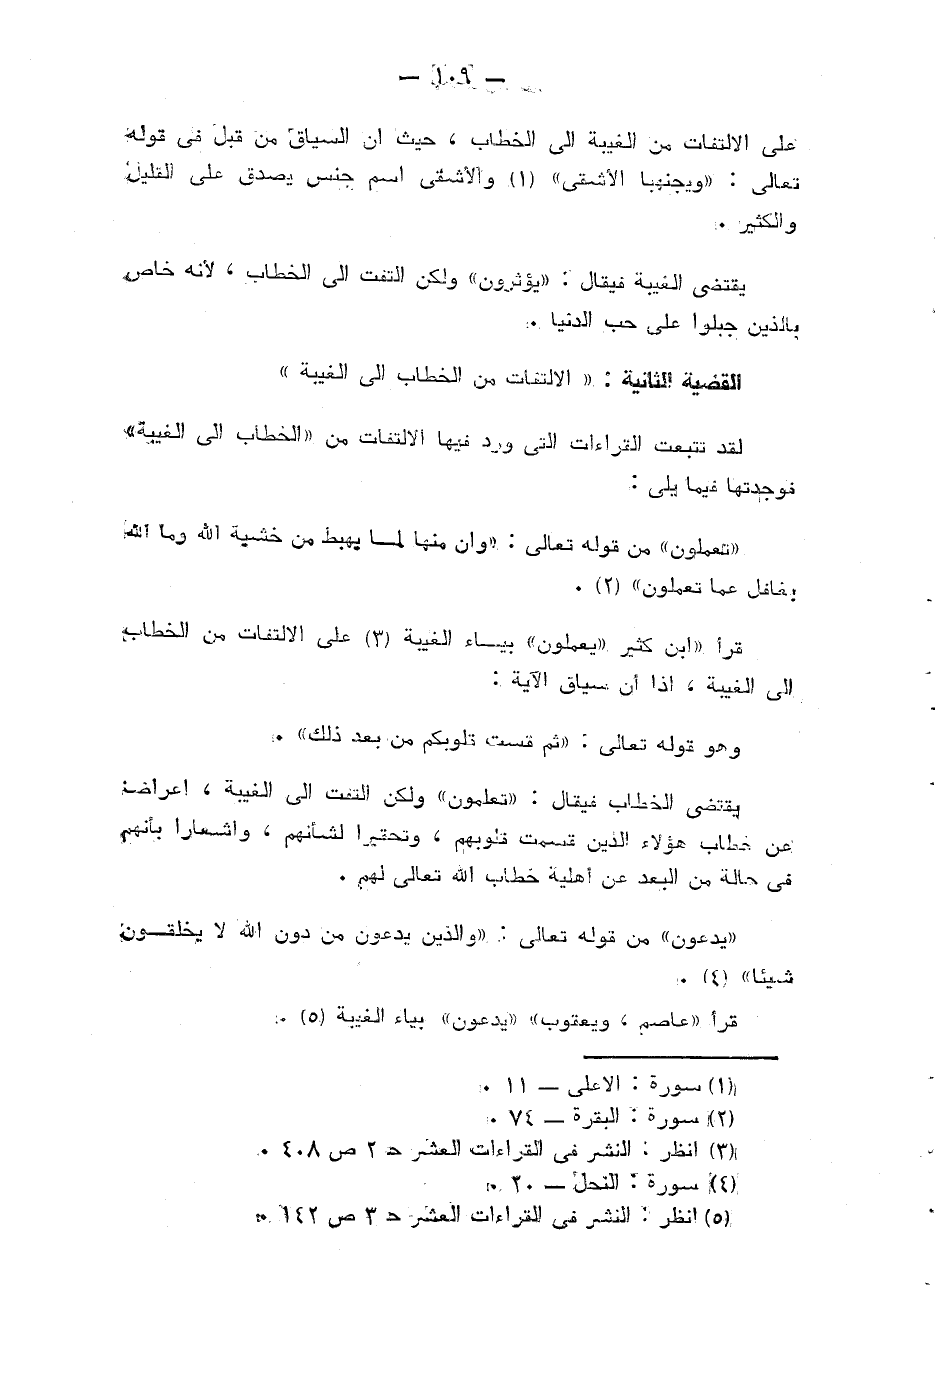 — ١٠٩ —
على الالتفات من الغيبة الى الخطاب ، حيث ان السياق من قبل فى قوله
تعالى : «ويجنبها الأشقى» (١) والأشقى اسم جنس يصدق على القليل
والكثير .
يقتضى الغيبة فيقال : «يؤثرون» ولكن التفت الى الخطاب ، لأنه خاص
بالذين جبلوا على حب الدنيا .
القضية الثانية : « الالتفات من الخطاب الى الغيبة »
لقد تتبعت القراءات التى ورد فيها الالتفات من «الخطاب الى الغيبة»
فوجدتها فيما يلى :
«تعملون» من قوله تعالى : «وان منها لما يهبط من خشية الله وما الله
بغافل عما تعملون» (٢) .
قرأ «ابن كثير «يعملون» بياء الغيبة (٣) على الالتفات من الخطاب
الى الغيبة ، اذا أن سياق الآية :
وهو قوله تعالى : «ثم قست قلوبكم من بعد ذلك» .
يقتضى الخطاب فيقال : «تعلمون» ولكن التفت الى الغيبة ، اعراضا
عن خطاب هؤلاء الذين قست قلوبهم ، وتحقيرا لشأنهم ، واشعارا بأنهم
فى حالة من البعد عن أهلية خطاب الله تعالى لهم .
«يدعون» من قوله تعالى : «والذين يدعون من دون الله لا يخلقون
شيئا» (٤) .
قرأ «عاصم ، ويعقوب» «يدعون» بياء الغيبة (٥) .
(١) سورة : الاعلى — ١١ .
(٢) سورة : البقرة — ٧٤ .
(٣) انظر : النشر فى القراءات العشر حـ ٢ ص ٤٠٨ .
(٤) سورة : النحل — ٢٠ .
(٥) انظر : النشر فى القراءات العشر حـ ٣ ص ١٤٢ .